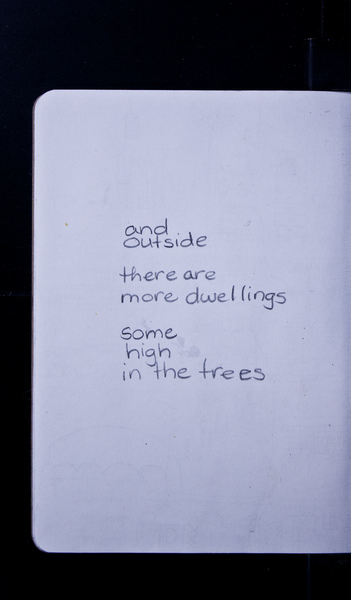 and
outside
there are
more dwellings
some
high
in the trees